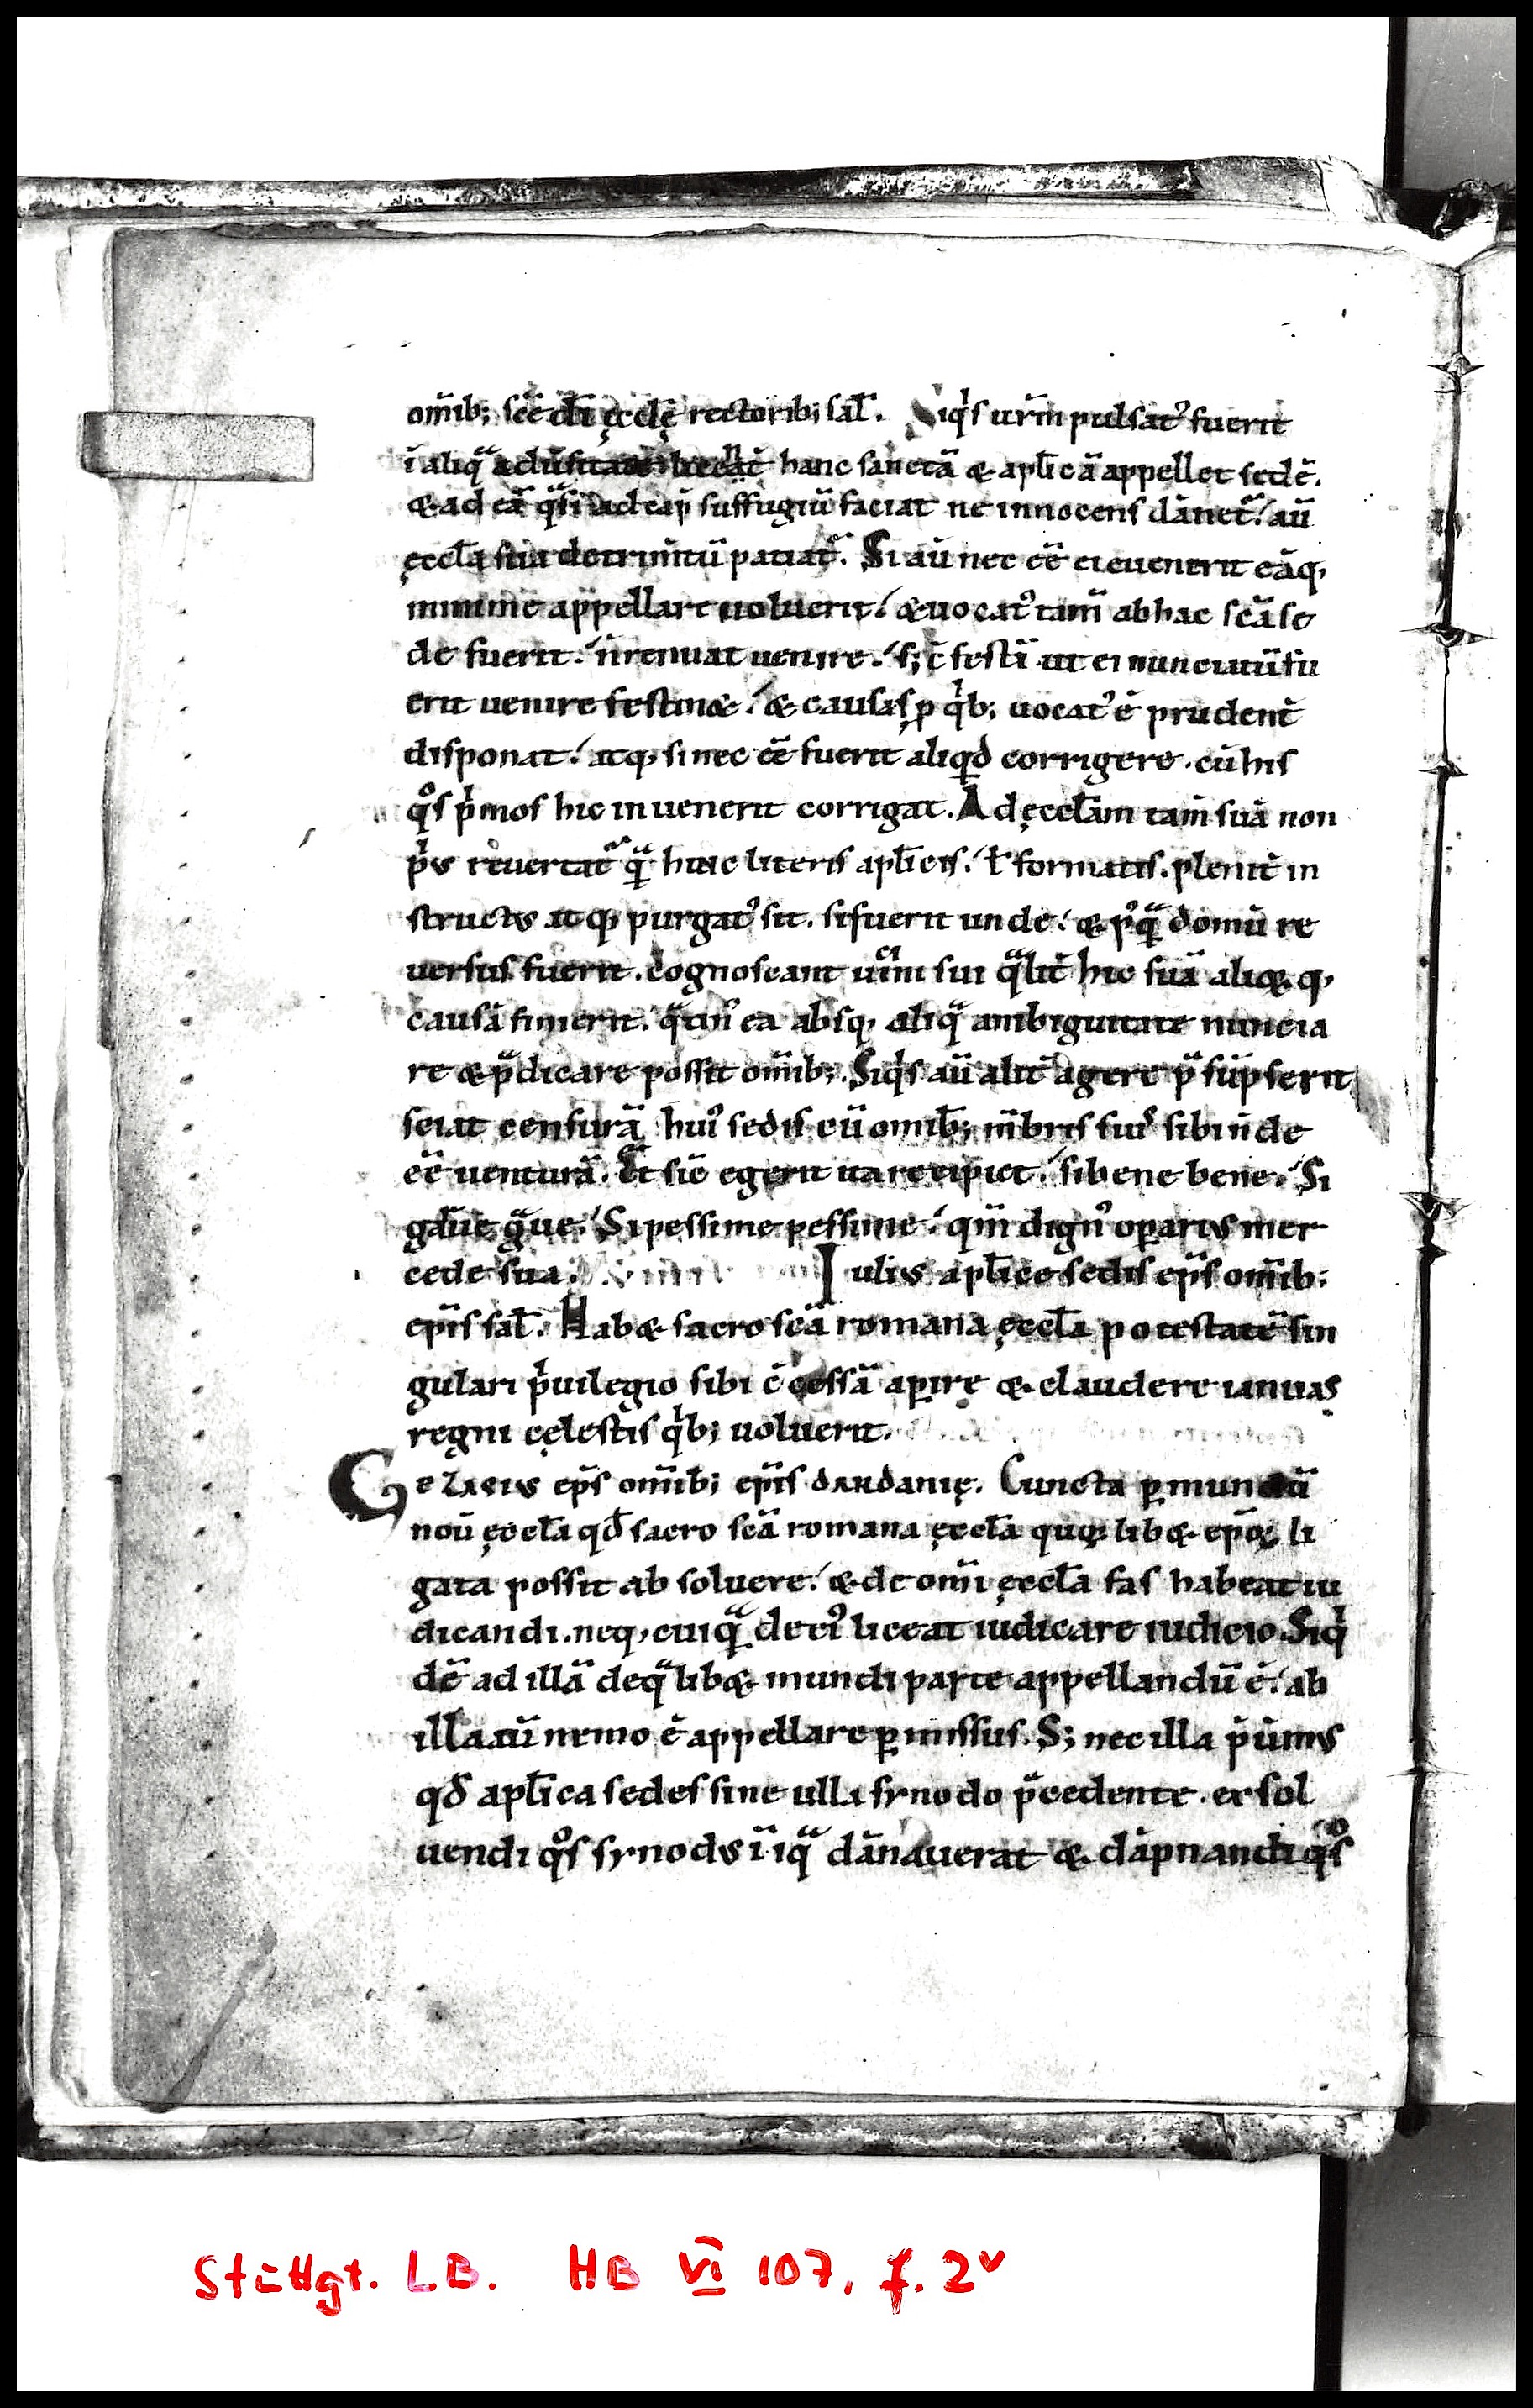 om̅ib; sc̅e di̅ ęccl̅ę rectorib; sal̅. Siqͥs ur̅m pulsatꝰ fuerit
i̅ aliqͣ aduersitate licent̅ hanc sanctā & apl̅icā appellet sedē.
& ad eā qͣsi ad cap̅ suffugiū faciat ne innocens dānet᷑. au̅
ęccl̅a sua detrim̅tū patiat᷑. Si au̅ nec ēē ei euenerit eāq,
minime appellare uoluerit. & uocatꝰ tam̅ ab hac sc̅a se
de fuerit. n̅ renuat uenire. s; c̅festi̅ ut ei nunciatū fu
erit uenire festin&. & causas, p qͥb; uocatꝰ ē prudent̅
disponat. atq, si nec ēē fuerit aliqd corrigere. cū his
qͦs pͥmos hic inuenerit corrigat. Ad ęccl̅am tam̅ suā non
pͥus reuertat᷑ qͣ̅ huic literis apl̅icis. ł formatis. plenit̅ in
structus atq, purgatꝰ sit. si fuerit unde. & pꝰqͣ̅ domū re
uersus fuerit. cognoscant uicͥni sui qͣlit̅ hic suā aliq& q,
causā finierit. qͣtinꝰ ea absq, aliqͣ ambiguitate nuncia
re & p̅dicare possit om̅ib;. Siqͥs au̅ alit̅ agere p̅sūpserit
sciat censurā huiꝰ sedis cū om̅ib; m̅bris suiꝰ sibi n̅ de
ēē uenturā. Et sic̅ egerit ita recipiet. si bene bene. Si
gͣue gͣue. Si pessime pessime. qm̅ dignꝰ oparius mer
cede sua. Iulius apl̅icę sedis ep̅s om̅ib;
ep̅is sal̅. Hab& sacrosc̅a romana ęccl̅a potestatē sin
gulari pͥuilegio sibi c̅cessā apire & claudere ianuas
regni cęlestis qͥb; uoluerit.
Gelasius ep̅s om̅ib; ep̅is dardanię. Cuncta p mundū
nou̅ ęccl̅a qd̅ sacrosc̅a romana ęccl̅a quoꝝ lib& ep̅oꝝ li
gata possit absoluere. & de om̅i ęccl̅a fas habeat iu
dicandi. neq, cuiqͣ̅ de eiꝰ liceat iudicare iudicio. Siqͥ
dē ad illā de qͣlib& mundi parte appellandū ē. ab
illa au̅ nemo ē appellare pmissus. S; nec illa p̅t̅im̅us
qd̅ apl̅ica sedes sine ulla synodo p̅cedente. exsol
uendi qͦs synodus i̅iqͣ dānauerat & dāpnandi qͦs
Stuttgt. L.B. HB VI 107, f. 2v